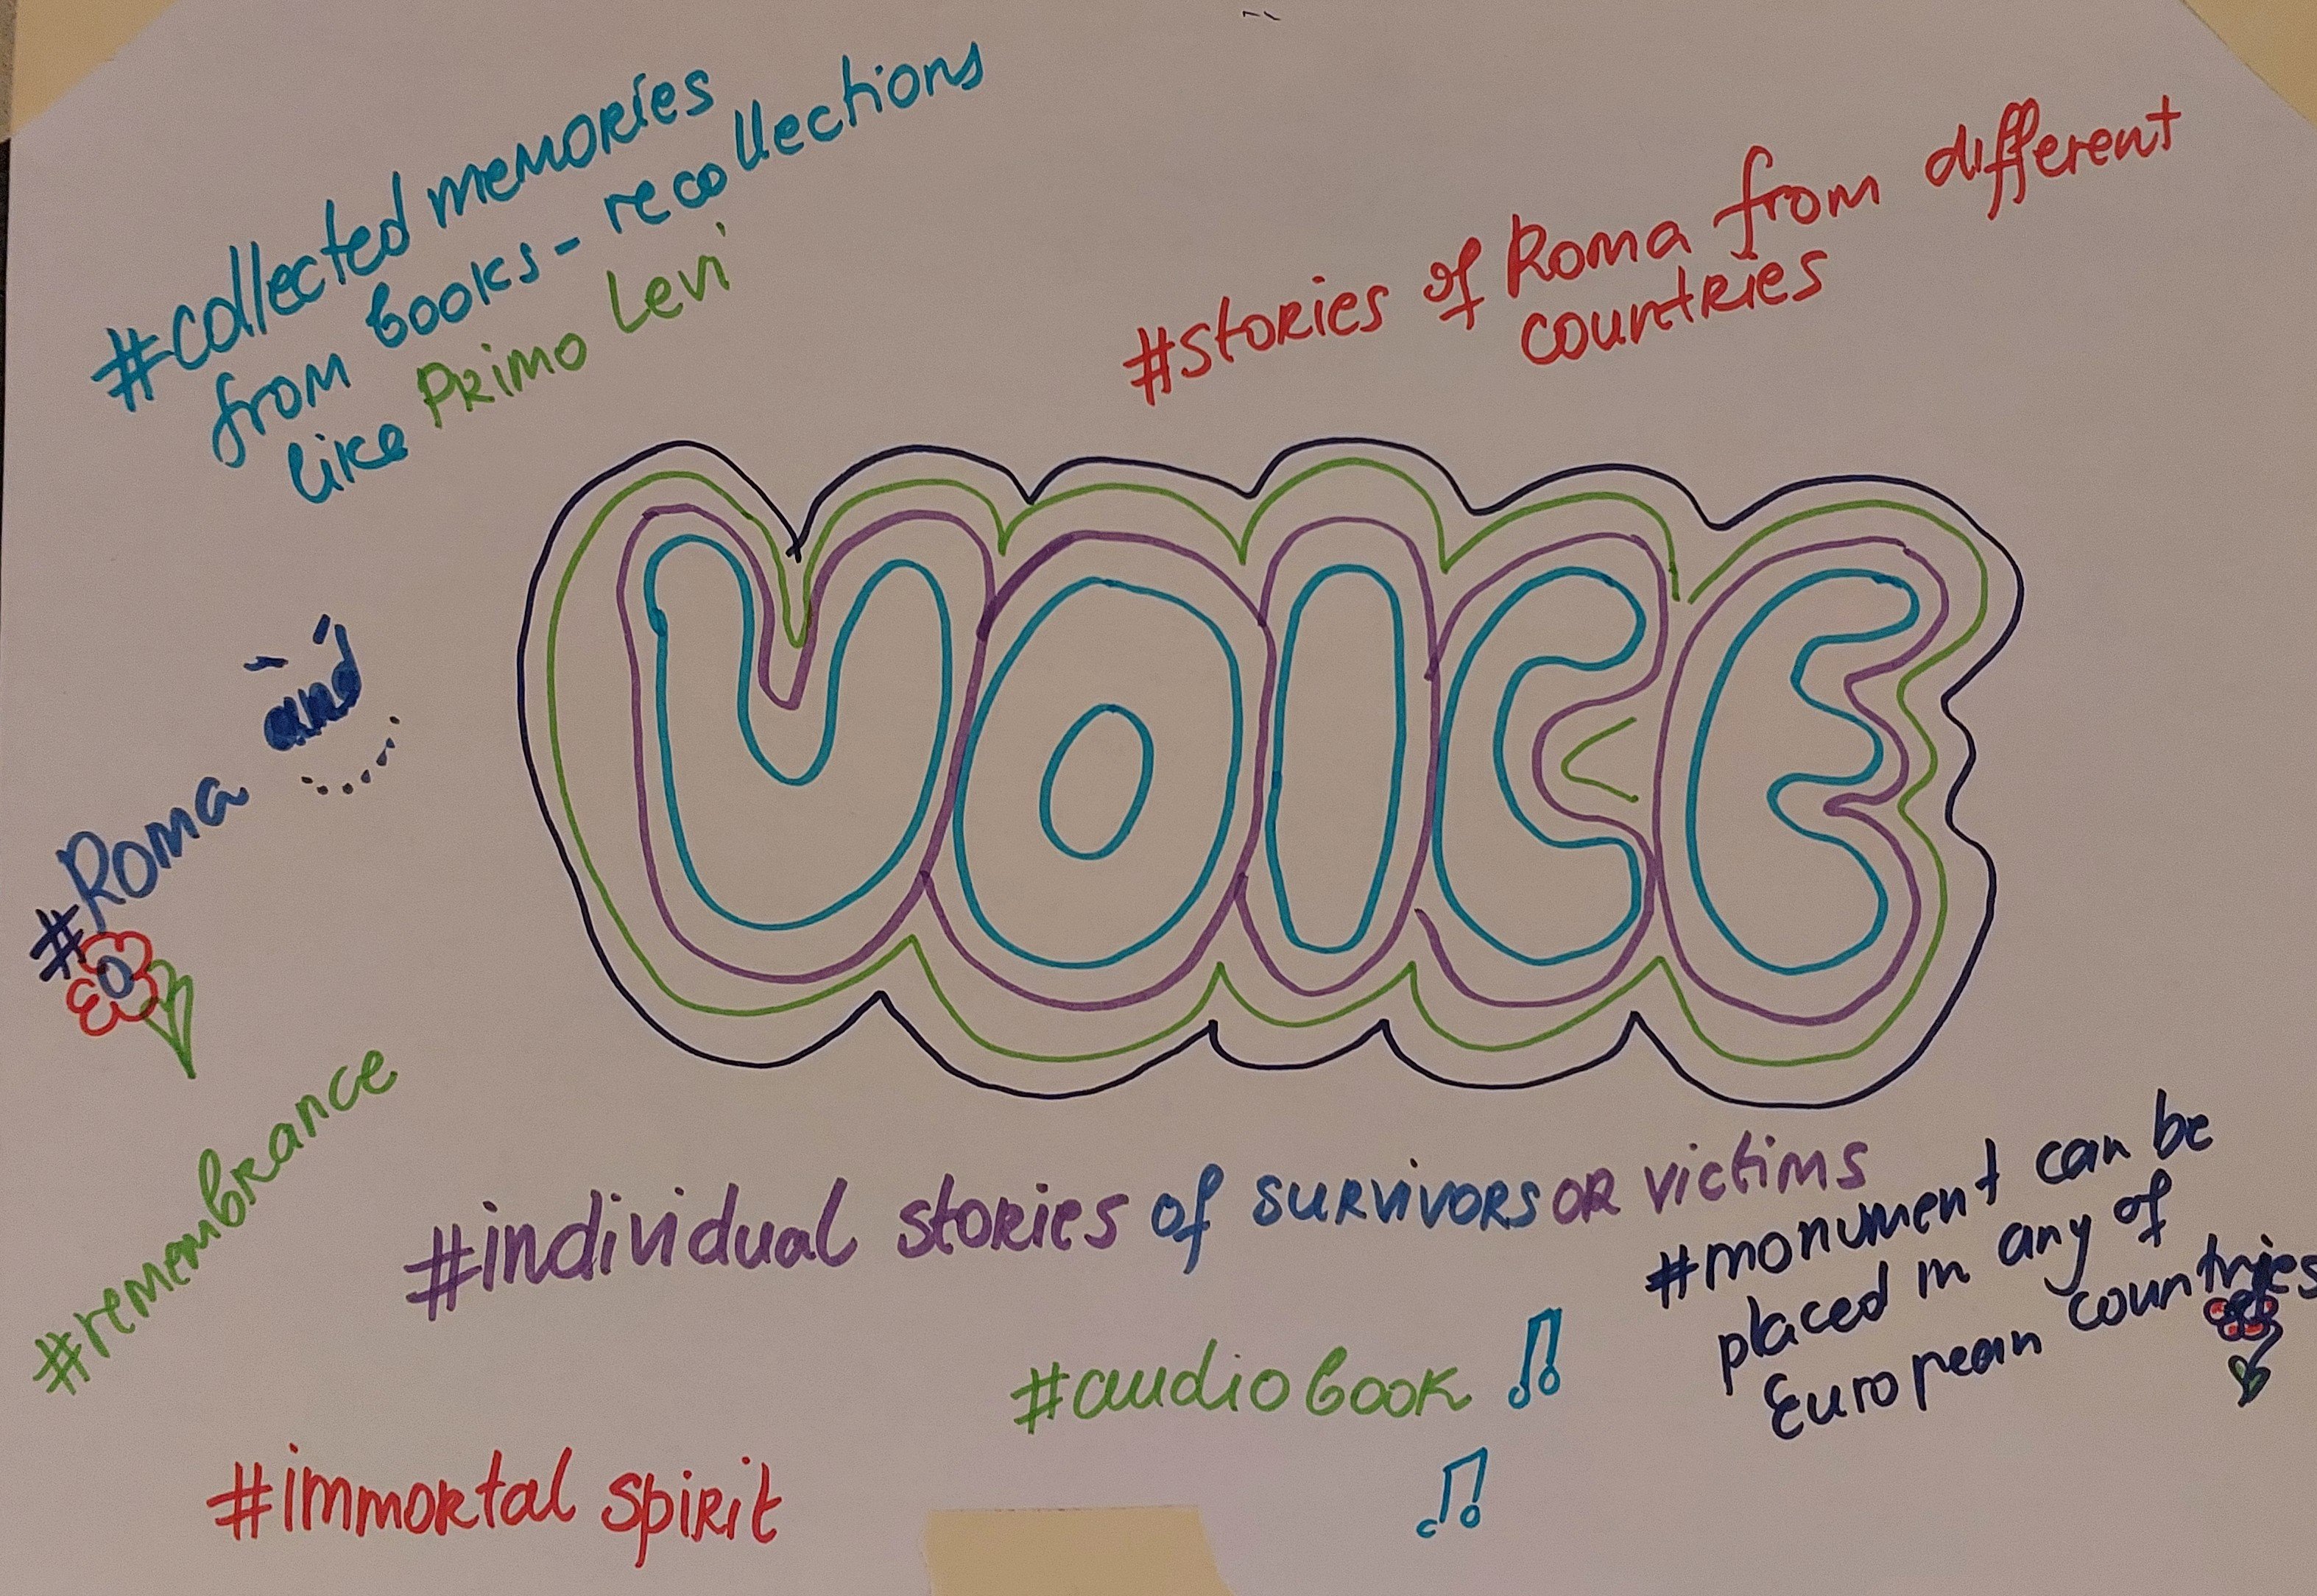 #collected memories
from books - recollections
like Primo Levi
#stories of Roma from different
countries
VOICE
#Roma and .....
#remembrance
#individual stories of survivors or victims
#monument can be
placed in any of
European countries
#audiobook
#immortal spirit